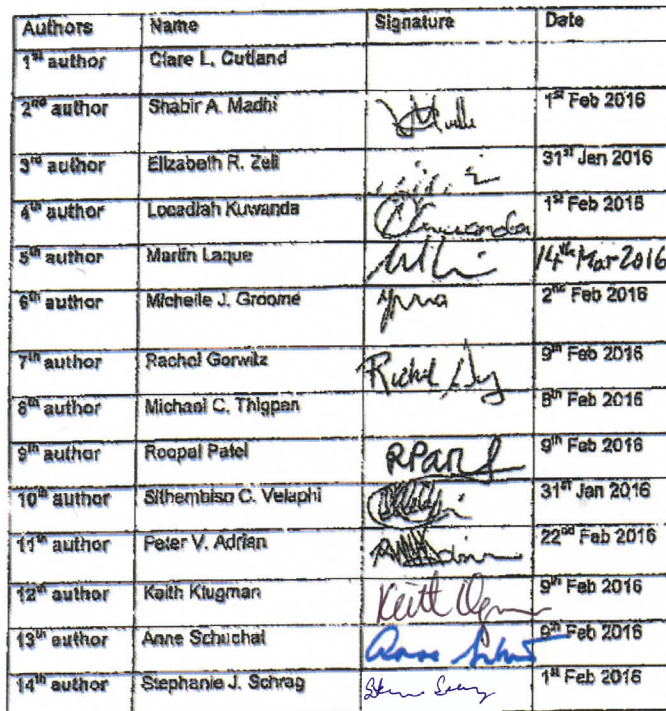 Authors Name Signature Date
1st author Clare L. Cutland
2nd author Shabir A. Madhi 1st Feb 2016
3rd author Elizabeth R. Zell 31st Jan 2016
4th author Locadiah Kuwanda Kuwanda 1st Feb 2016
5th author Martin Laque 14th Mar 2016
6th author Michelle J. Groome 2nd Feb 2016
7th author Rachel Gorwitz Rachel 9th Feb 2016
8th author Michael C. Thigpen 8th Feb 2016
9th author Roopal Patel 9th Feb 2016
10th author Sithembiso C. Velaphi 31st Jan 2016
11th author Peter V. Adrian 22nd Feb 2016
12th author Keith Klugman Keith 9th Feb 2016
13th author Anne Schuchat Anne 9th Feb 2016
14th author Stephanie J. Schrag 1st Feb 2016